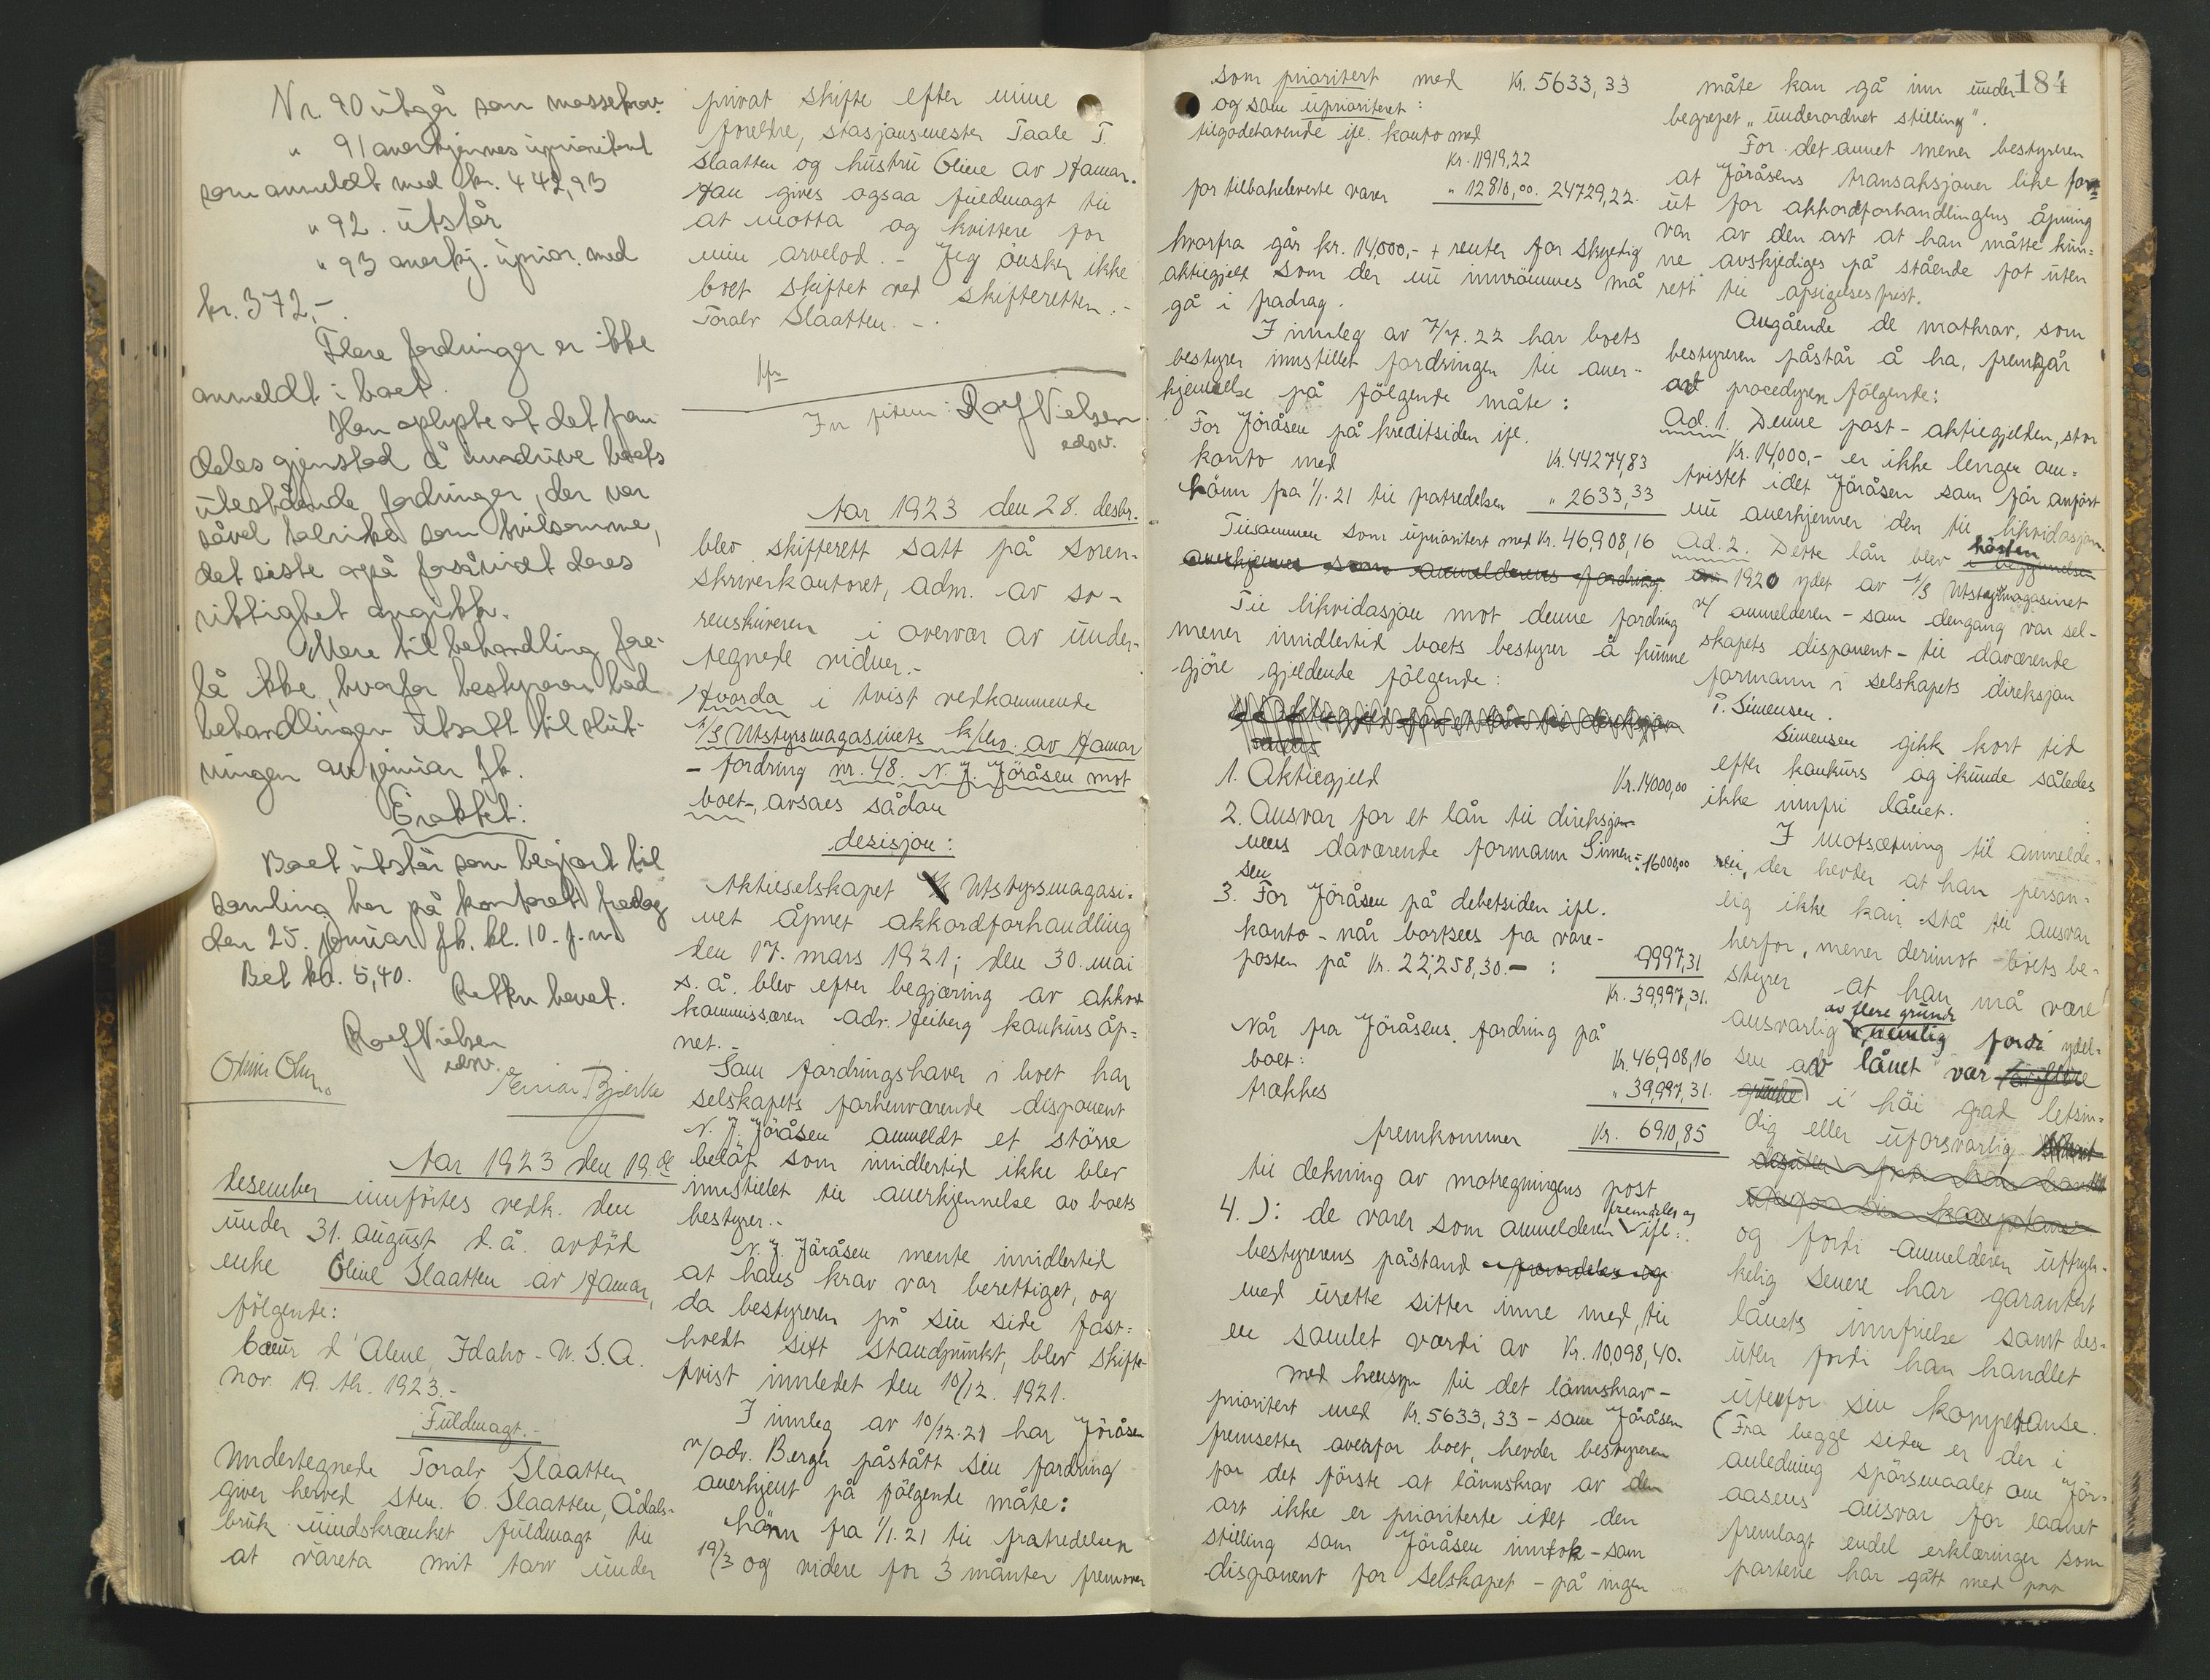 Nr. 90 utgår som massekrav.
" 91 anerkjennes uprioritert
som anmeldt med kr. 442,93
" 92. utstår
" 93 anerkj. uprior. med
kr. 372,-.
Flere fordringer er ikke
anmeldt i boet.
Han oplyste at det frem
deles gjenstod å inndrive boets
utestående fordringer, der var
såvel talrike som tvilsomme,
det siste også forsåvidt deres
riktighet angikk.
Mere til behandling fore-
lå ikke, hvorfor bestyreren bad
behandlingen utsatt til slut-
ningen av januar fk.
Eraktet:
Boet utstår som begjært til
samling her på kontoret fredag
den 25. januar fk. kl. 10. f.m.
Bet kr. 5,40.
Retten hevet.
Rolf Nielsen
edsv.
Einar Bjerke
Aar 1923 den 19. de
desember innførtes vedk. den
under 31. august d.å. avdöd
enke Oline Slaatten av Hamar,
fölgende:
Coeur d'Alene, Idaho - U.S.A.
nov. 19. th. 1923.-
Fuldmagt.-
Undertegnede Toralv Slaatten
giver herved stm. O. Slaatten, Ådals-
bruk uindskrænket fuldmagt til
at vareta mit tarv under
privat skifte efter mine
foreldre, stasjonsmester Taale T.
Slaatten og hustru Oline av Hamar.
Han gives ogsaa fuldmagt til
at motta og kvittere for
min arvelod.- Jeg önsker ikke
boet skiftet ved skifteretten.-
Toralv Slaatten.-
In fidem: Rolf Nielsen
edsv.
Aar 1923 den 28. desbr.
blev skifterett satt på soren-
skriverkontoret, adm. av so-
renskriveren i overvær av under-
tegnede vidner.-
Hvorda i tvist vedkommende
A/S Utstyrsmagasinets k/bo. av Hamar
- fordring nr. 48. N. J. Jöråsen mot
boet-, avsaes sådan
desisjon:
Aktieselskapet Utstyrsmagasi-
net åpnet akkordforhandling
den 17. mars 1921; den 30. mai
s. å. blev efter begjæring av akkord
kommissæren adv. Heiberg konkurs åp-
net.
Som fordringshaver i boet har
selskapets forhenværende disponent
N. J. Jöråsen anmeldt et större
belöp som imidlertid ikke blev
innstillet til anerkjennelse av boets
bestyrer.-
N. J. Jöråsen mente imidlertid
at hans krav var berettiget, og
da bestyreren på sin side fast-
holdt sitt standpunkt, blev skifte-
tvist innledet den 10/12. 1921.
I innleg av 10/12.21 har Jöråsen
v/adv. Bergh påstått sin fordring
anerkjent på fölgende måte:
Lönn fra 1/1.21 til fratredelsen
19/3 og videre for 3 månter fremover
184
som prioritert med Kr. 5633,33
og som uprioritert:
tilgodehavende ifl. konto med
Kr. 11919,22
for tilbakeleverte varer " 12810,00. 24729,22.
hvorfra går kr. 14,000,- + renter for skyldig
aktiegjeld som der nu innrömmes må
gå i fradrag.
I innleg av 7/7.22 har boets
bestyrer innstillet fordringen til aner-
kjennelse på fölgende måte:
For Jöråsen på kreditsiden ifl.
konto med Kr. 44274,83
Lönn fra 1/1.21 til fratredelsen " 2633,33
Tilsammen som uprioritert med Kr. 46,908,16
anerkjennes som anmelderens fordring.
Til likvidasjon mot denne fordring
mener imidlertid boets bestyrer å kunne
gjöre gjeldende fölgende:
1. Aktiegjeld Kr. 14000,00
2. Ansvar for et lån til direksjo-
nens daværende formann Simen- " 16000,00
sen
3. For Jöråsen på debetsiden ifl.
konto - når bortsees fra vare-
posten på Kr. 22,258,30.- : 9997,31
Kr. 39,997,31.
Når fra Jöråsens fordring på
boet: Kr. 46,908,16
trækkes " 39,997,31.
fremkommer Kr. 6910,85
til dekning av motregningens post
4.): de varer som anmelderen fremdeles og ifl.
bestyrerens påstand - fremdeles og
med urette sitter inne med, til
en samlet værdi av Kr. 10,098,40.
Med hensyn til det lönnskrav -
prioritert med Kr. 5633,33 - som Jöråsen
fremsetter overfor boet, hevder bestyreren
for det förste at lönnskrav av den
art ikke er prioriterte idet den
stilling som Jöråsen inntok - som
disponent for selskapet - på ingen
måte kan gå inn under
begrepet "underordnet stilling".
For det annet mener bestyreren
at Jöråsens transaksjoner like for-
ut for akkordforhandlingens åpning
var av den art at han måtte kun-
ne avskjediges på stående fot uten
rett til opsigelsesfrist.
Angående de motkrav, som
bestyreren påstår å ha, fremgår
av procedyren fölgende:
Ad. 1. Denne post - aktiegjelden, stor
Kr. 14,000,- er ikke lenger om-
tvistet idet Jöråsen som för anfört
nu anerkjenner den til likvidasjon.
Ad. 2. Dette lån blev hösten
1920 ydet av A/S Utstyrsmagasinet
v/ anmelderen - som dengang var sel-
skapets disponent - til daværende
formann i selskapets direksjon
P. Simensen.
Simensen gikk kort tid
efter konkurs og kunde således
ikke innfri lånet.
I motsætning til anmelde-
ren, der hevder at han person-
lig ikke kan stå til ansvar
herfor, mener derimot boets be-
styrer at han må være
ansvarlig av flere grunde nemlig fordi ydel-
sen av lånet var
i höi grad letsin-
dig eller uforsvarlig
og fordi anmelderen uttryk-
kelig senere har garantert
lånets innfrielse samt des-
uten fordi han handlet
utenfor sin kompetanse.
(Fra begge sider er der i
anledning spörsmaalet om Jör-
aasens ansvar for laanet
fremlagt endel erklæringer som
partene har gått med på